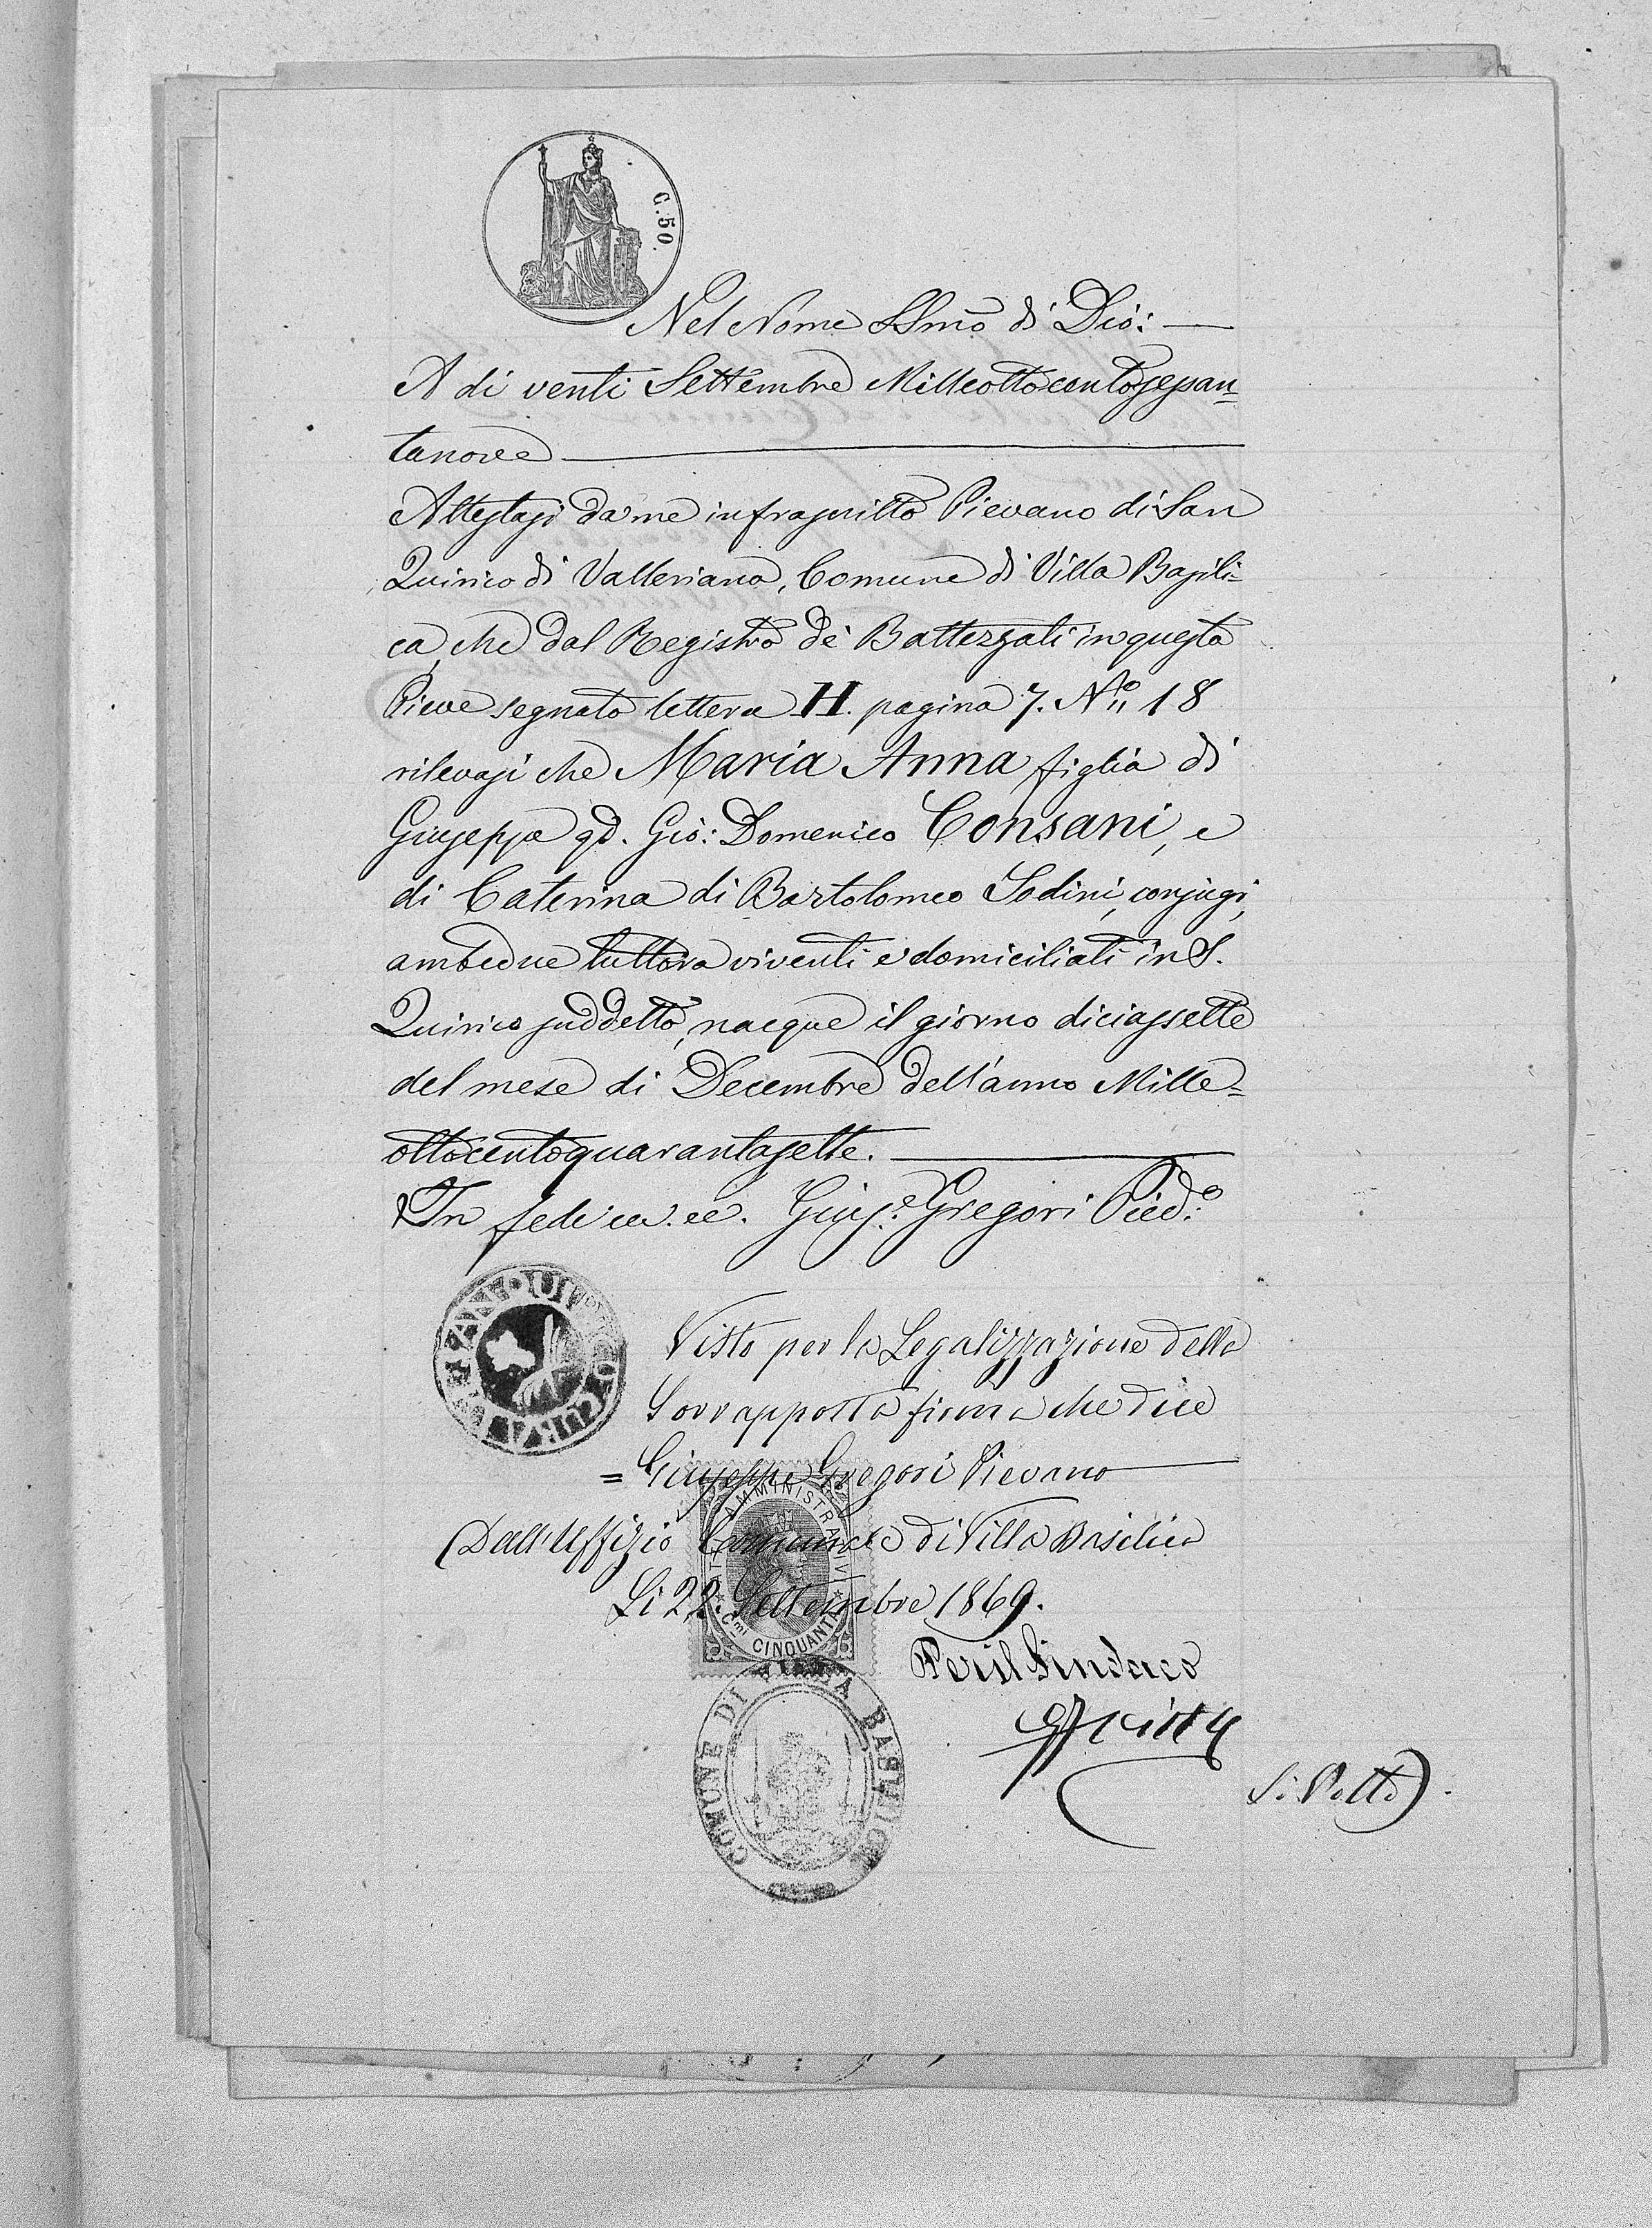 C. 50.
Nel Nome SSmo di Dio: —
A di venti Settembre Milleottocentosessan=
tanove
Attestasi da me infrascritto Pievano di San
Quirico di Valleriana, Comune di Villa Basili=
ca, che dal Registro de' Battezzati in questa
Pieve segnato lettera H. pagina 7. No. 18
rilevasi che Maria Anna figlia di
Giuseppe qd. Gio: Domenico Consani, e
di Caterina di Bartolomeo Sodini, conjugi,
ambedue tuttora viventi e domiciliati in S.
Quirico suddetto, nacque il giorno diciassette
del mese di Decembre dell'anno Mille=
ottocentoquarantasette.
In fede
Gius.e Gregori
Visto per la Legalizzazione della
Sovrapposta firma che dice
= Giuseppe Gregori Pievano
Dall'Uffizio Comunale di Villa Basilica
Li 22. Settembre 1869.
AMMINISTRATIV
Cmi CINQUANTA
Per il Sindaco
COMUNE DI VILLA BASILICA